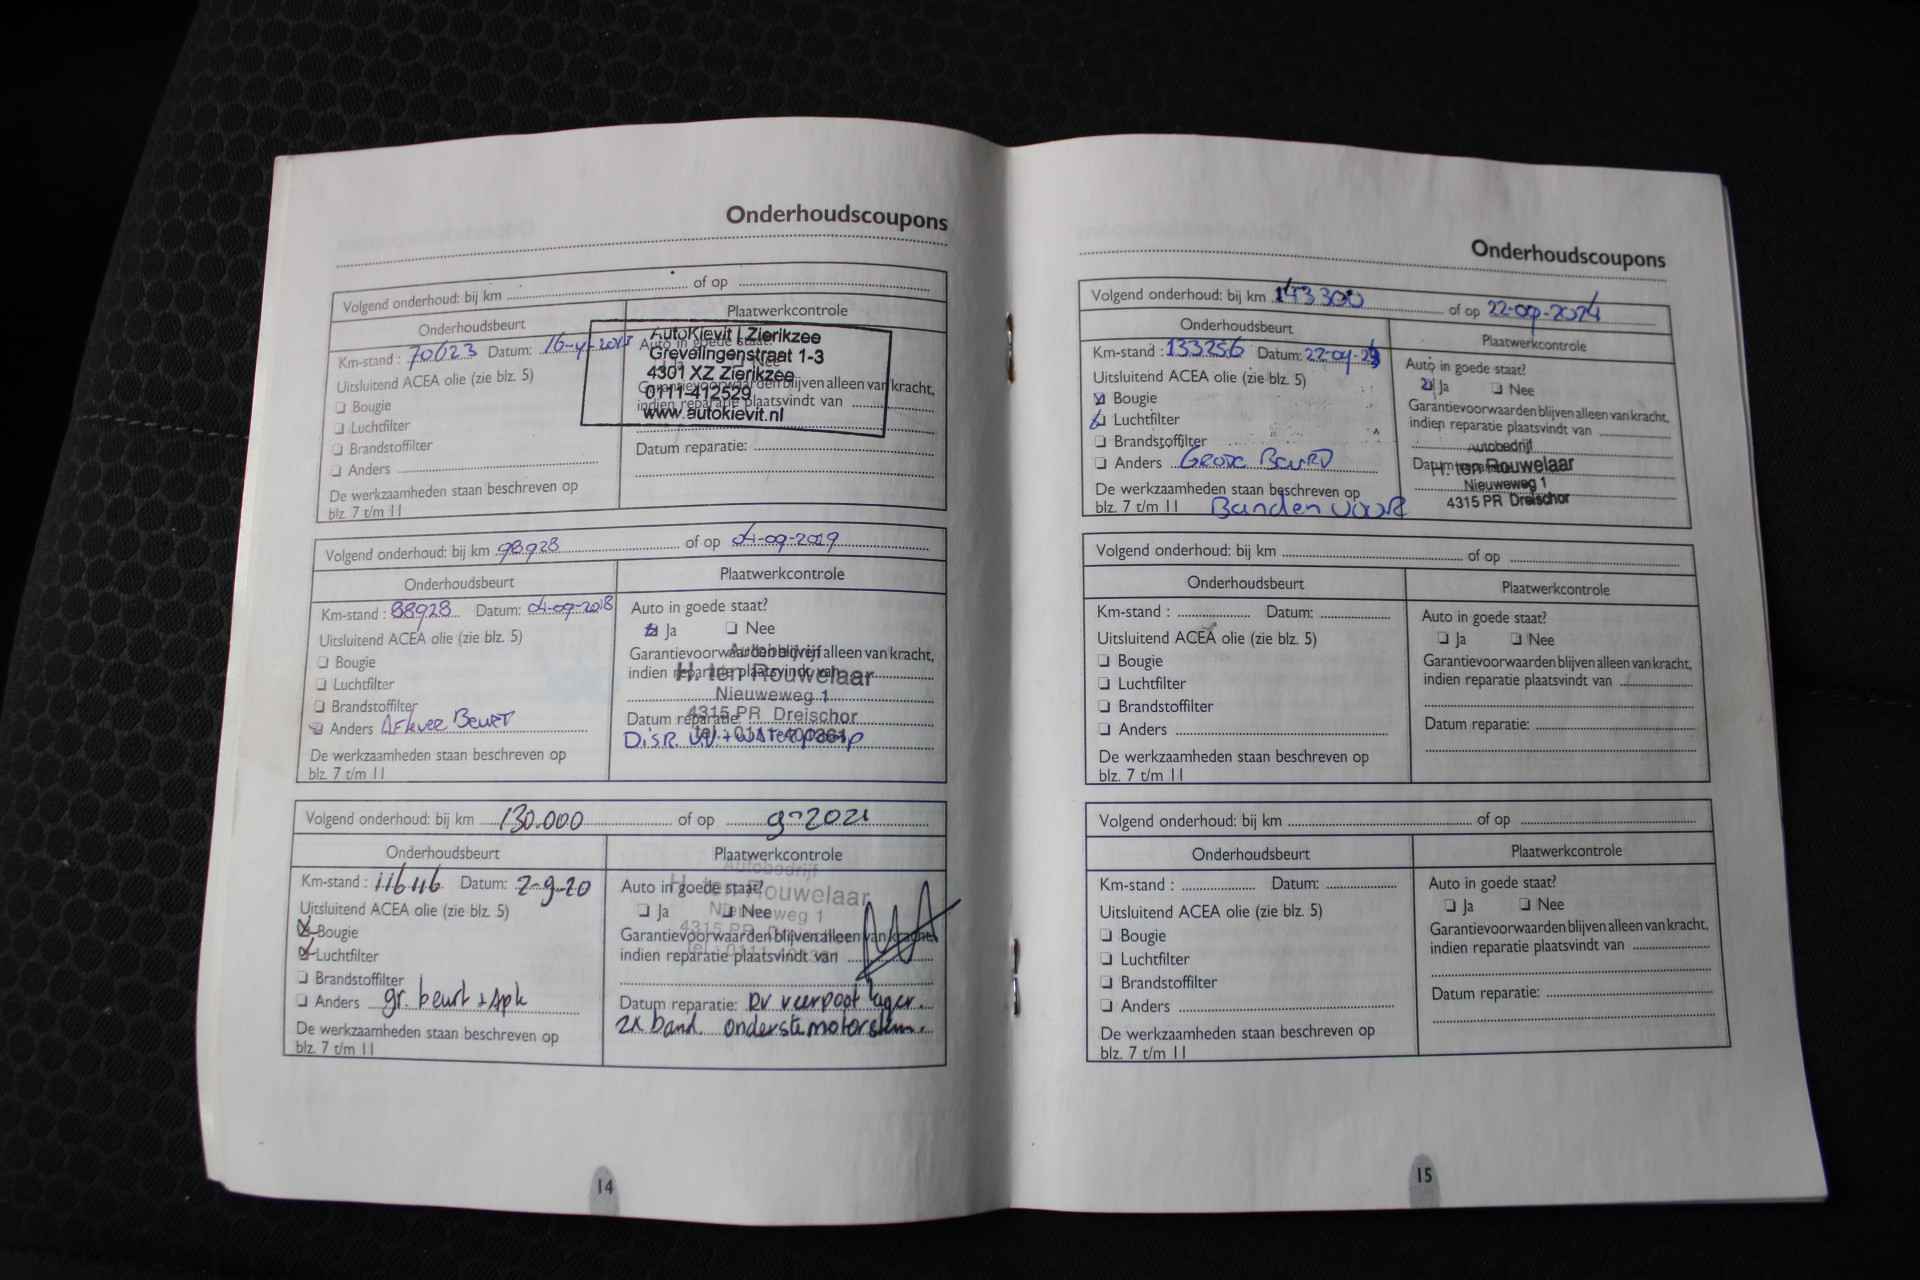 Onderhoudscoupons
Volgend onderhoud: bij km of op
Onderhoudsbeurt
Plaatwerkcontrole
Km-stand : 70623 Datum:
Uitsluitend ACEA olie (zie blz. 5)
Bougie
Luchtfilter
Brandstoffilter
Anders
De werkzaamheden staan beschreven op
blz. 7 t/m 11
AutoKievit | Zierikzee
Auto in goede staat?
Grevelingenstraat 1-3
Nee
4301 XZ Zierikzee
Garantievoorwaarden blijven alleen van kracht,
0111-412529
indien reparatie plaatsvindt van
www.autokievit.nl
Datum reparatie:
Volgend onderhoud: bij km 98928 of op 04-09-2019
Onderhoudsbeurt
Plaatwerkcontrole
Km-stand : 88928 Datum: 04-09-2018
Uitsluitend ACEA olie (zie blz. 5)
Bougie
Luchtfilter
Brandstoffilter
Anders Beurt
De werkzaamheden staan beschreven op
blz. 7 t/m 11
Auto in goede staat?
Ja Nee
Autobedrijf
Garantievoorwaarden blijven alleen van kracht,
H. ten Rouwelaar
indien reparatie plaatsvindt van
Nieuweweg 1
4315 PR Dreischor
Datum reparatie:
tel.: 0111-401361
Disr. + waterpomp
Volgend onderhoud: bij km 130.000 of op 9-2021
Onderhoudsbeurt
Plaatwerkcontrole
Km-stand : 116116 Datum: 2-9-20
Uitsluitend ACEA olie (zie blz. 5)
Bougie
Luchtfilter
Brandstoffilter
Anders gr. beurt + Apk
De werkzaamheden staan beschreven op
blz. 7 t/m 11
Autobedrijf
Auto in goede staat?
H. ten Rouwelaar
Ja Nee
Nieuweweg 1
Garantievoorwaarden blijven alleen van kracht,
indien reparatie plaatsvindt van
Datum reparatie: RV veerpoot lager.
2x band. onderste motorsteun.
14
Onderhoudscoupons
Volgend onderhoud: bij km 143300 of op 22-09-2024
Onderhoudsbeurt
Plaatwerkcontrole
Km-stand : 133256 Datum:
Uitsluitend ACEA olie (zie blz. 5)
Bougie
Luchtfilter
Brandstoffilter
Anders Grote Beurt
De werkzaamheden staan beschreven op
blz. 7 t/m 11 Banden voor
Auto in goede staat?
Ja Nee
Garantievoorwaarden blijven alleen van kracht,
indien reparatie plaatsvindt van
Autobedrijf
H. ten Rouwelaar
Nieuweweg 1
4315 PR Dreischor
Volgend onderhoud: bij km of op
Onderhoudsbeurt
Plaatwerkcontrole
Km-stand : Datum:
Uitsluitend ACEA olie (zie blz. 5)
Bougie
Luchtfilter
Brandstoffilter
Anders
De werkzaamheden staan beschreven op
blz. 7 t/m 11
Auto in goede staat?
Ja Nee
Garantievoorwaarden blijven alleen van kracht,
indien reparatie plaatsvindt van
Datum reparatie:
Volgend onderhoud: bij km of op
Onderhoudsbeurt
Plaatwerkcontrole
Km-stand : Datum:
Uitsluitend ACEA olie (zie blz. 5)
Bougie
Luchtfilter
Brandstoffilter
Anders
De werkzaamheden staan beschreven op
blz. 7 t/m 11
Auto in goede staat?
Ja Nee
Garantievoorwaarden blijven alleen van kracht,
indien reparatie plaatsvindt van
Datum reparatie:
15